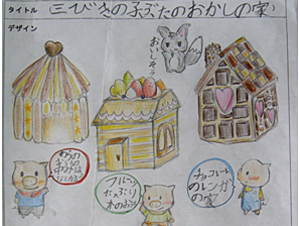 タイトル 三びきの子ぶたのおかしの家
デザイン
おいしそう
フルーツ
たっぷり
木のおうち
チョコレート
のレンガ
の家